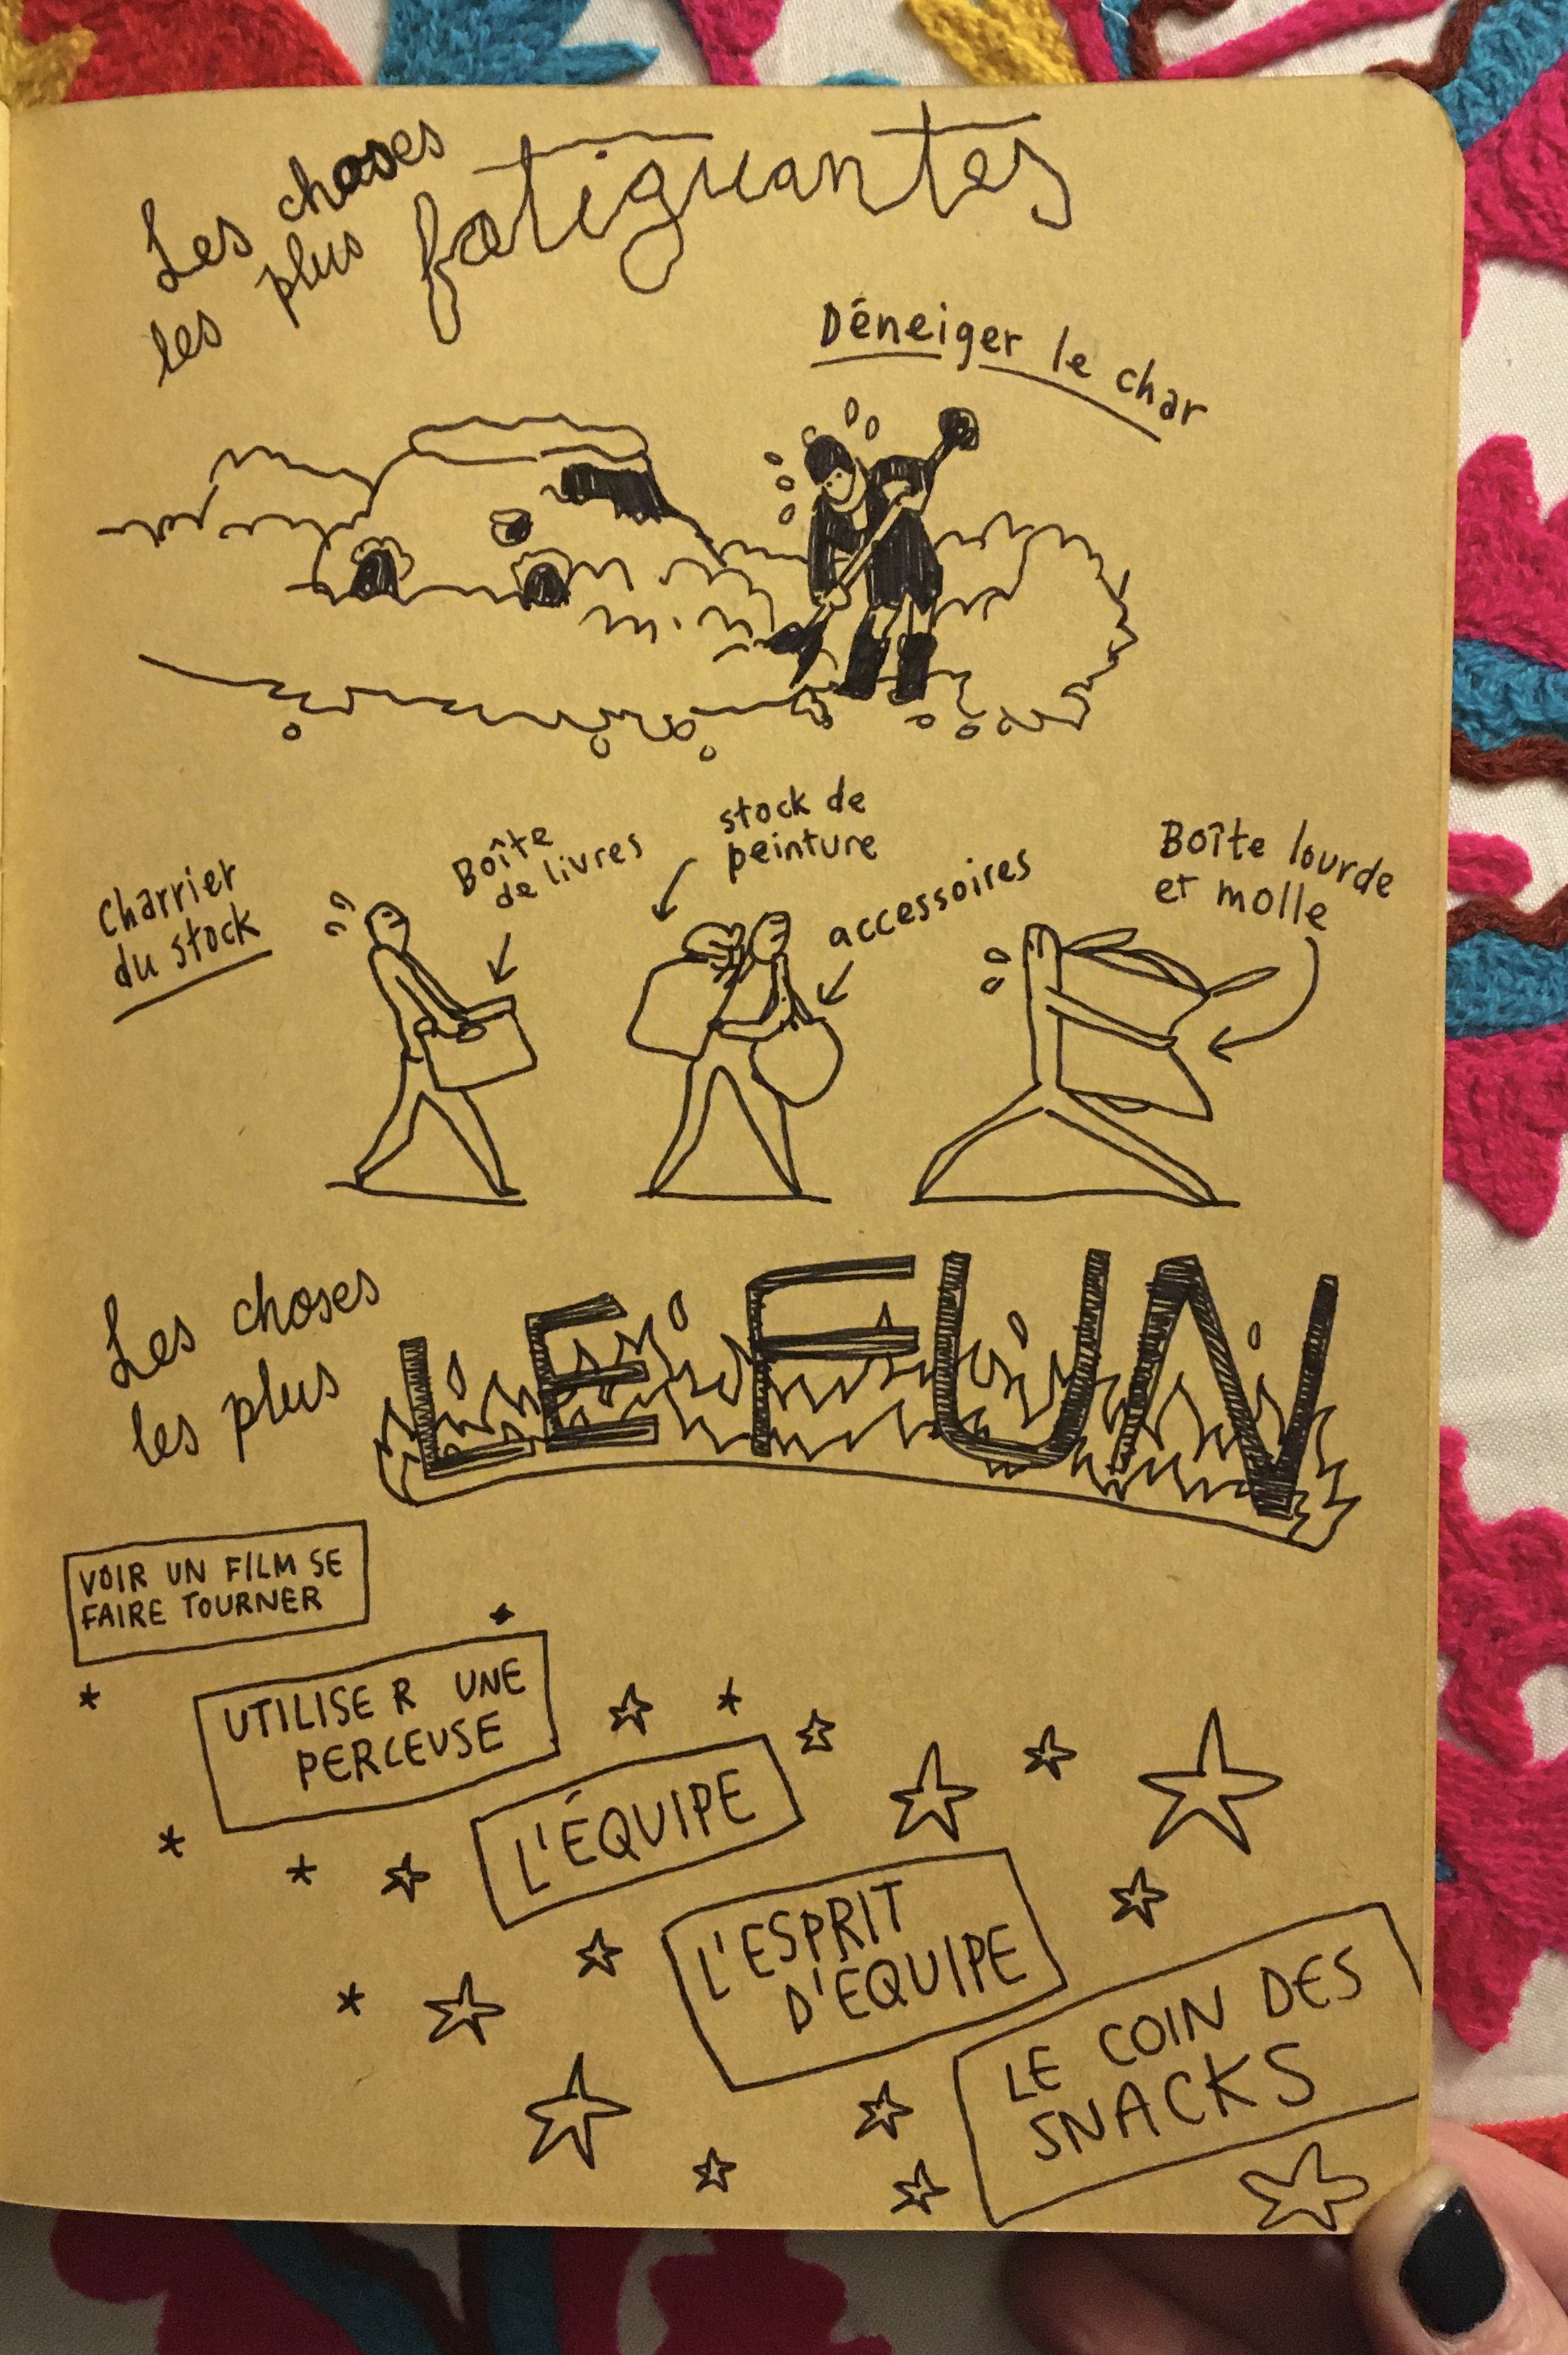 Les choses
les plus fatiguantes
Déneiger le char
Charrier
du stock
Boîte
de livres
stock de
peinture
accessoires
Boîte lourde
et molle
Les choses
les plus
LE FUN
VOIR UN FILM SE
FAIRE TOURNER
UTILISER UNE
PERCEUSE
L'ÉQUIPE
L'ESPRIT
D'ÉQUIPE
LE COIN DES
SNACKS